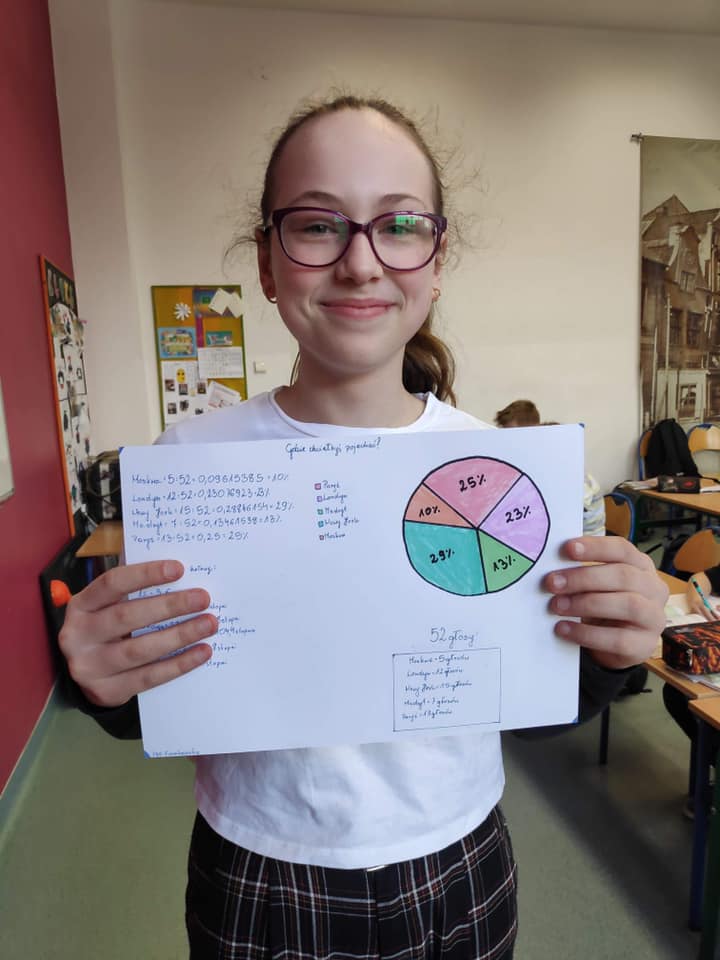 Gdzie chciałbyś pojechać?
Moskwa: 5:52=0,09615385=10%
Londyn: 12:52=0,23076923=23%
Nowy Jork: 15:52=0,28846154=29%
Madryt: 7:52=0,13461538=13%
Paryż: 13:52=0,25=25%
Paryż
Londyn
Madryt
Nowy Jork
Moskwa
25%
10%
23%
29%
13%
stopni
52 głosy:
Moskwa - 5 głosów
Londyn - 12 głosów
Nowy Jork - 15 głosów
Madryt - 7 głosów
Paryż - 13 głosów